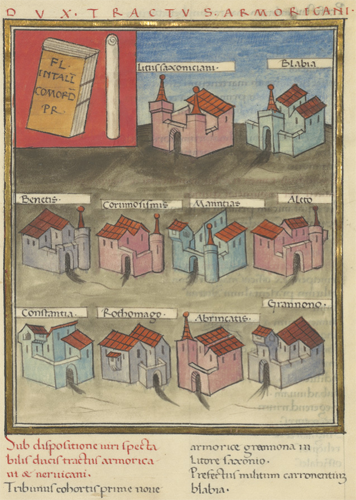 DVX·TRACTVS·ARMORICANI·
FL
INTALL
COMORD
PR·
Litus saxoniciani·
Blabia·
Benetis·
Corimosismis
Mannatias
Aleto
Constantia·
Rothomago·
Abrincatis·
Grannono·
Sub dispositione uiri specta
bilis ducis tractus armorica
ni & neruicani·
Tribunus cohortis prime noue
armorice grannona in
litore saxonio·
Prefectus militum carronentium
blabia·